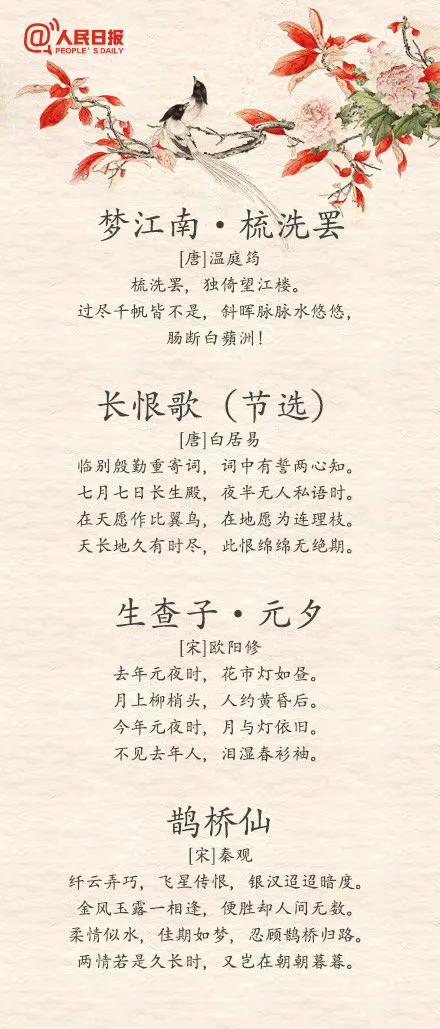 @人民日报
PEOPLE'S DAILY
梦江南·梳洗罢
[唐]温庭筠
梳洗罢，独倚望江楼。
过尽千帆皆不是，斜晖脉脉水悠悠，
肠断白蘋洲！
长恨歌（节选）
[唐]白居易
临别殷勤重寄词，词中有誓两心知。
七月七日长生殿，夜半无人私语时。
在天愿作比翼鸟，在地愿为连理枝。
天长地久有时尽，此恨绵绵无绝期。
生查子·元夕
[宋]欧阳修
去年元夜时，花市灯如昼。
月上柳梢头，人约黄昏后。
今年元夜时，月与灯依旧。
不见去年人，泪湿春衫袖。
鹊桥仙
[宋]秦观
纤云弄巧，飞星传恨，银汉迢迢暗度。
金风玉露一相逢，便胜却人间无数。
柔情似水，佳期如梦，忍顾鹊桥归路。
两情若是久长时，又岂在朝朝暮暮。